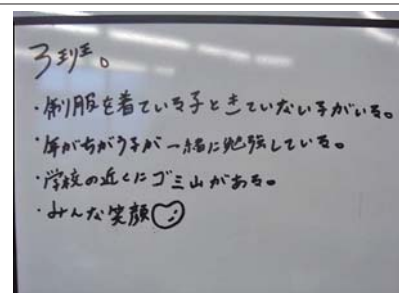 3班。
・制服を着ている子ときていない子がいる。
・年がちがう子が一緒に勉強している。
・学校の近くにゴミ山がある。
・みんな笑顔